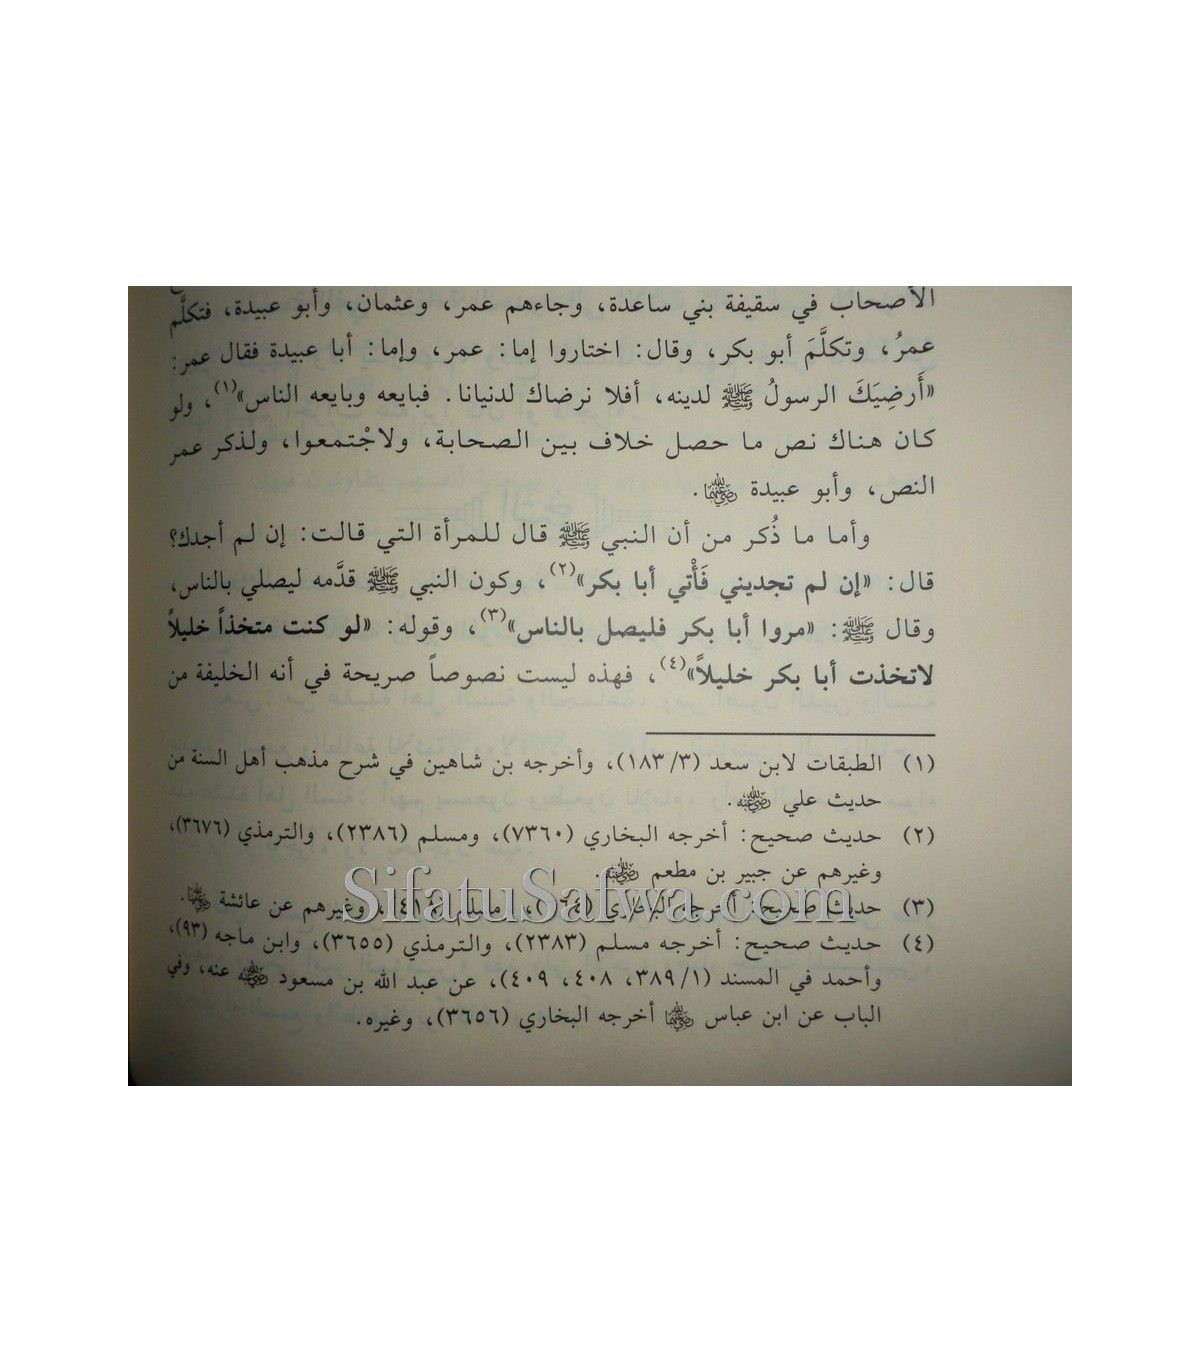 الأصحاب في سقيفة بني ساعدة، وجاءهم عمر، وعثمان، وأبو عبيدة، فتكلَّم
عمرُ، وتكلَّمَ أبو بكر، وقال: اختاروا إما: عمر، وإما: أبا عبيدة فقال عمر:
«أَرضِيَكَ الرسولُ ﷺ لدينه، أفلا نرضاك لدنيانا. فبايعه وبايعه الناس»(١)، ولو
كان هناك نص ما حصل خلاف بين الصحابة، ولاجْتمعوا، ولذكر عمر
النص، وأبو عبيدة رضي الله عنهما.
وأما ما ذُكر من أن النبي ﷺ قال للمرأة التي قالت: إن لم أجدك؟
قال: «إن لم تجديني فَأْتي أبا بكر»(٢)، وكون النبي ﷺ قدَّمه ليصلي بالناس،
وقال ﷺ: «مروا أبا بكر فليصل بالناس»(٣)، وقوله: «لو كنت متخذاً خليلاً
لاتخذت أبا بكر خليلاً»(٤)، فهذه ليست نصوصاً صريحة في أنه الخليفة من
(١) الطبقات لابن سعد (٣/ ١٨٣)، وأخرجه بن شاهين في شرح مذهب أهل السنة من
حديث علي رضي الله عنه.
(٢) حديث صحيح: أخرجه البخاري (٧٣٦٠)، ومسلم (٢٣٨٦)، والترمذي (٣٦٧٦)،
وغيرهم عن جبير بن مطعم رضي الله عنه.
SifatuSafwa.com
(٣) حديث صحيح: أخرجه البخاري (٦٦٤)، ومسلم (٤١٨)، وغيرهم عن عائشة رضي الله عنها.
(٤) حديث صحيح: أخرجه مسلم (٢٣٨٣)، والترمذي (٣٦٥٥)، وابن ماجه (٩٣)،
وأحمد في المسند (١/ ٣٨٩، ٤٠٨، ٤٠٩)، عن عبد الله بن مسعود رضي الله عنه عنه، وفي
الباب عن ابن عباس رضي الله عنهما أخرجه البخاري (٣٦٥٦)، وغيره.